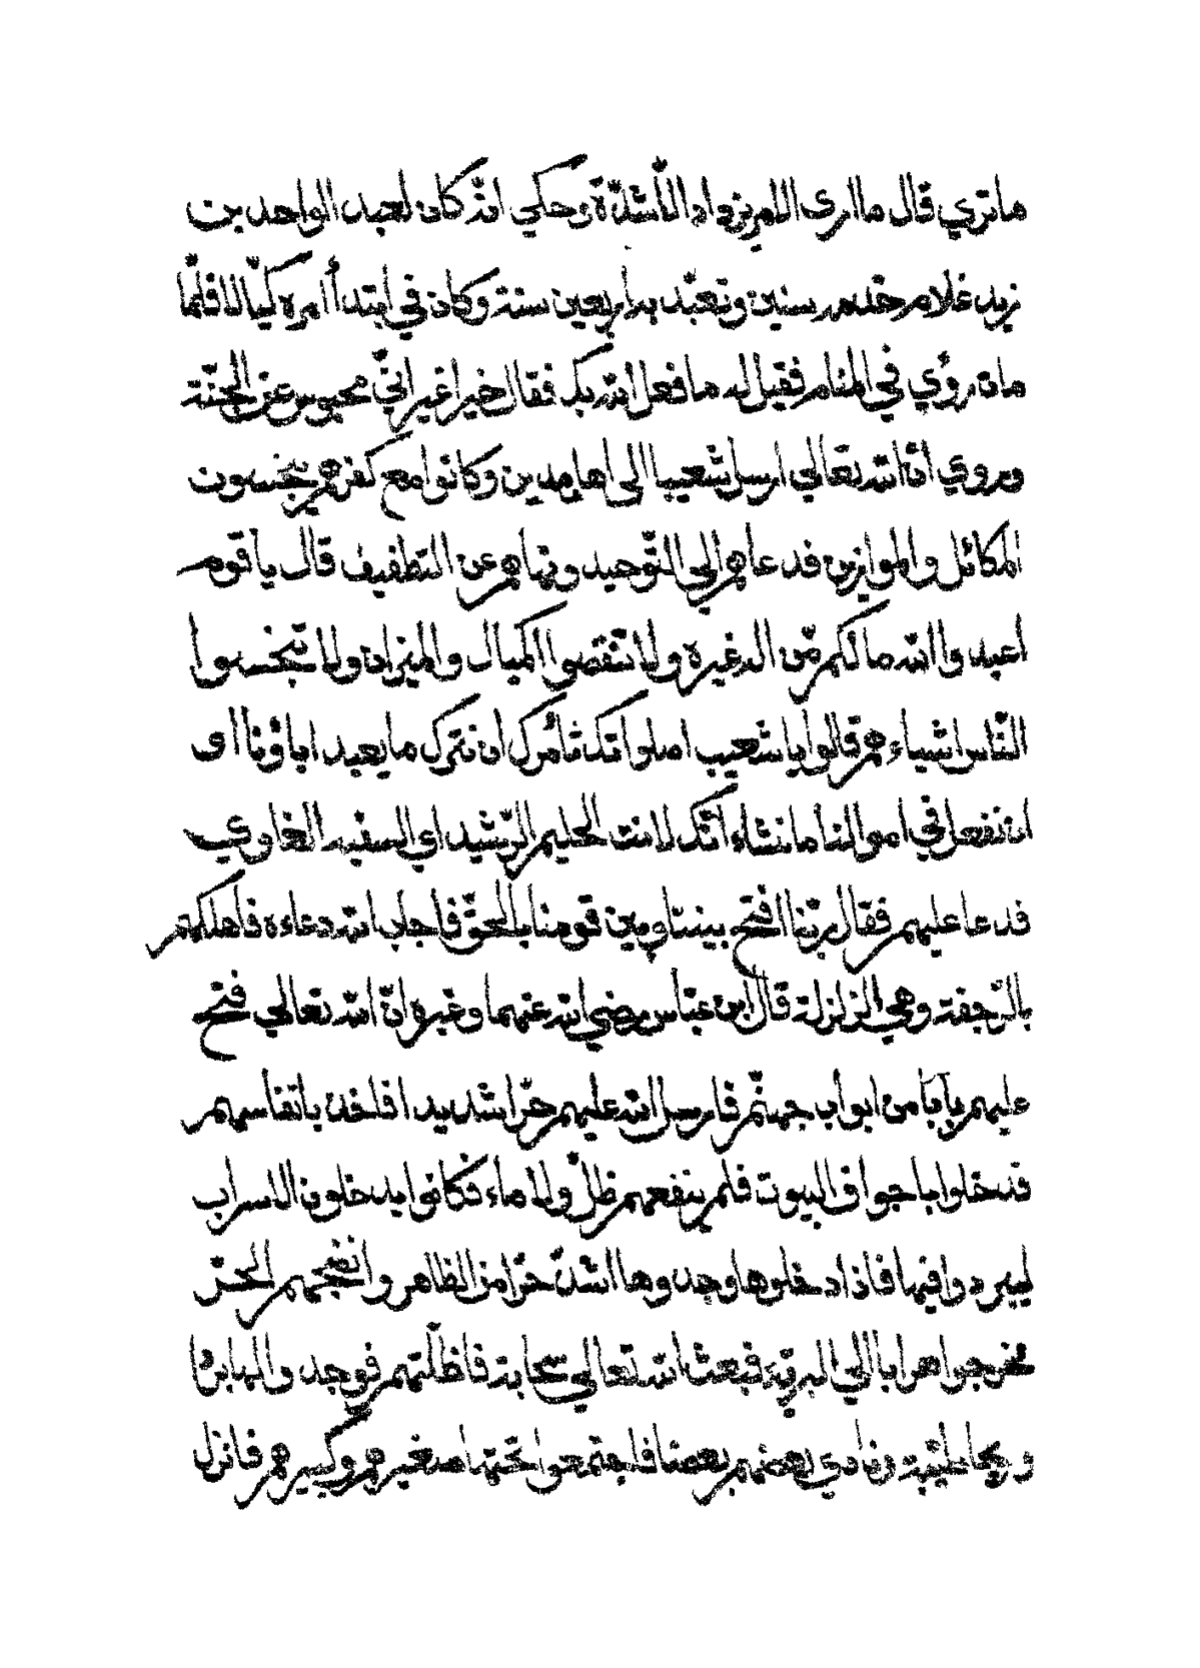 ما ترى قال ما ارى الامر يزداد الا شدّة وحكي انّه كان لعبد الواحد بن
زيد غلام خدمه سنين وتعبّد به اربعين سنة وكان في ابتدأ امره كيّالا فلمّا
مات رؤي في المنام فقيل له ما فعل الله بك فقال خيرا غير انّي محبوس عن الجنّة
وروي انّ الله تعالي ارسل شعيبا الى اهل مدين وكانوا مع كفرهم يبخسون
المكائل والموازين فدعاهم الي التّوحيد ونهاهم عن التطفيف قال يا قوم
اعبدوا الله ما لكم مّن اله غيره ولا تنقصوا المكيال والميزان ولا تبخسوا
النّاس اشياءهم قالوا يا شعيب اصلواتك تأمرك ان نترك ما يعبد اباؤنا او
ان نفعل في اموالنا ما نشاء انّك لانت الحليم الرّشيد اي السفيه الغاوي
فدعا عليهم فقال ربّنا افتح بيننا وبين قومنا بالحقّ فاجاب الله دعاءه فاهلكهم
بالرّجفة وهي الزلزلة قال ابن عبّاس رضي الله عنهما وغيره انّ الله تعالي فتح
عليهم بابا من ابواب جهنّم فارسل الله عليهم حرّا شديدا فاخذ بانفاسهم
فدخلوا باجواف البيوت فلم ينفعهم ظلّ ولا ماء فكانوا يدخلون الاسراب
ليبردوا فيها فاذا دخلوها وجدوها اشدّ حرّا من الظاهر وانضجهم الحرّ
فخرجوا هرابا الي البريّة فبعث الله تعالي سحابة فاظلّتهم فوجدوا لها بردا
وريحا طيّبة ونادي بعضهم بعضا فاجتمعوا تحتها صغيرهم وكبيرهم فانزل